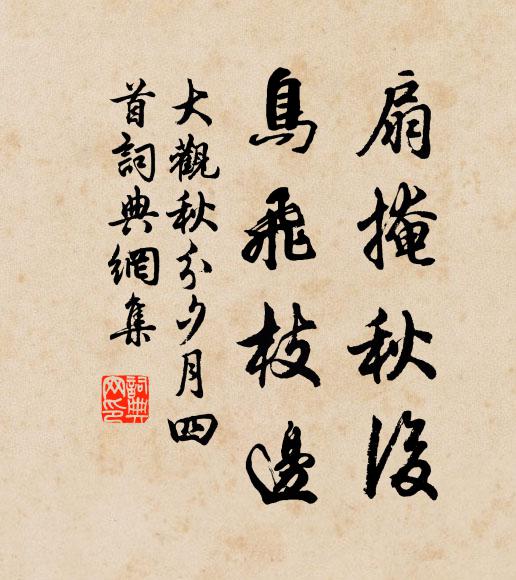 扇掩秋後
鳥飛枝邊
大觀秋分夕月四
首詞典網集
詞典
网印